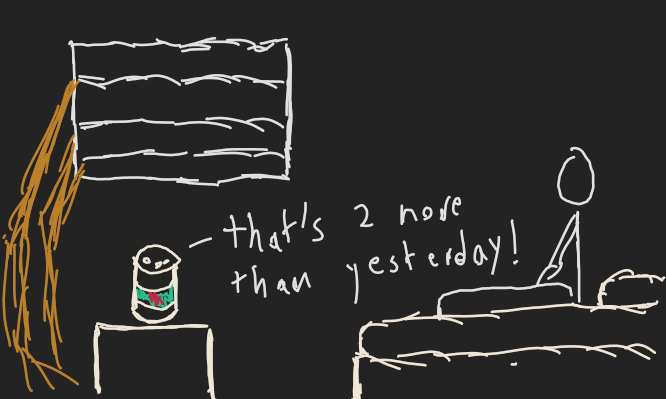 that's 2 more
than yesterday!